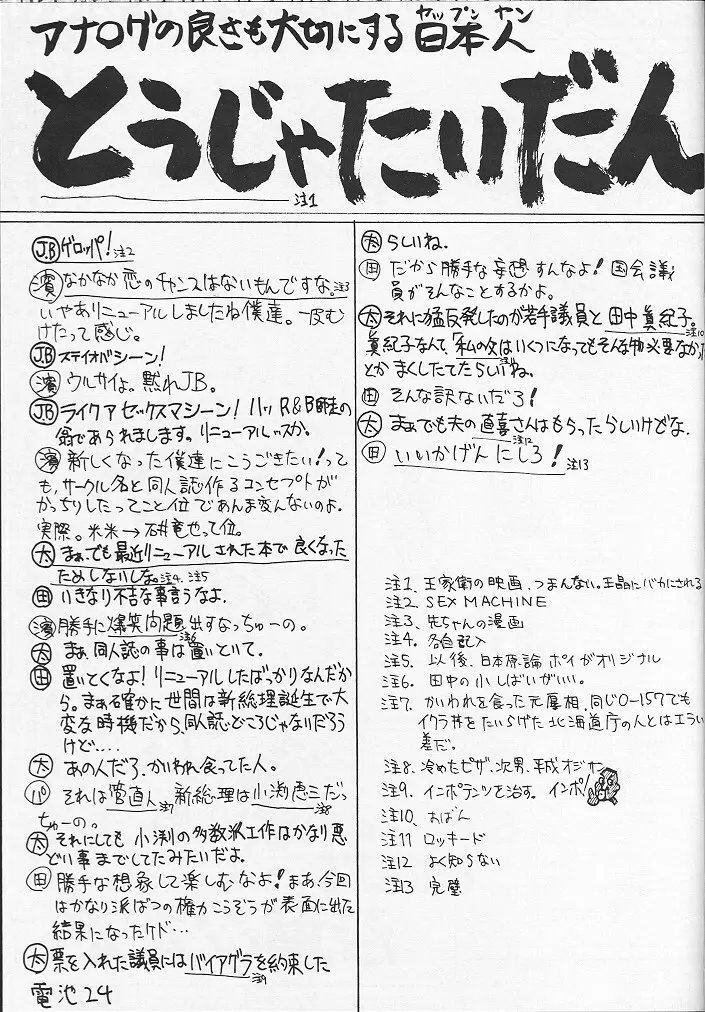 アナログの良さも大切にする 日本人
ヤップン ヤン
とうじゃたいだん
注1
J.B ゲロッパ! 注2
濱 なかなか恋のチャンスはないもんですな。注3
いやありニューアルしましたね僕達。一皮む
けたって感じ。
JB ステイオバシーン!
濱 ウルサイよ。黙れJB。
JB ライクア セックスマシーン! ハッ R&B師走の
翁であられまします。リニューアルッスか。
濱 新しくなった僕達にこうごきたい!って
も、サークル名と同人誌作るコンセプトが
かっちりしたってこと位であんま変んないのよ.
実際。米米→石井竜也って位。
太 まぁでも最近リニューアルされた本で良くなった
ためしないしな。注4. 注5
田 いきなり不吉な事言うなよ.
濱 勝手に爆笑問題出すなっちゅーの。
注6
太 まぁ、同人誌の事は置いといて.
田 置いとくなよ! リニューアルしたばっかりなんだか
ら。まぁ確かに世間は新総理誕生で大
変な時機だから、同人誌どころじゃないだろう
けど....
太 あの人だろ、かいわれ食ってた人。
パ それは管直人 新総理は小渕恵三だっ
注7 注8
ちゅーの。
太 それにしても 小渕の多数派工作はかなり悪
どい事までしてたみたいだよ.
田 勝手な想象して楽しむなよ! まぁ、今回
はかなり派ばつの権力こうぞうが表面に出た
結果になったケド...
太 票を入れた議員にはバイアグラを約束した
注9
電池24
太 らしいね.
田 だから勝手な妄想すんなよ! 国会議
員がそんなことするかよ。
太 それに猛反発したのが若手議員と田中眞紀子。
注10
眞紀子なんて、「私の父はいくつになってもそんな物必要なかった
注11
とかまくしたててたらしいね.
田 そんな訳ないだろ!
太 まぁでも夫の直喜さんはもらったらしいけどな.
注12
田 いいかげんにしろ! 注13
注1. 王家衛の映画.つまんない。王晶にバカにされる
注2. SEX MACHINE
注3. 先ちゃんの漫画
注4. 各自記入
注5. 以後、日本原論ポイがオリジナル
注6. 田中の小しばいがいい。
注7. かいわれを食った元厚相.同じO-157でも
イクラ丼をたいらげた北海道庁の人とはエラい
差だ。
注8. 冷めたピザ、次男、平成オジサン
注9. インポテンツを治す。インポ!
注10. おばん
注11 ロッキード
注12 よく知らない
注13 完璧